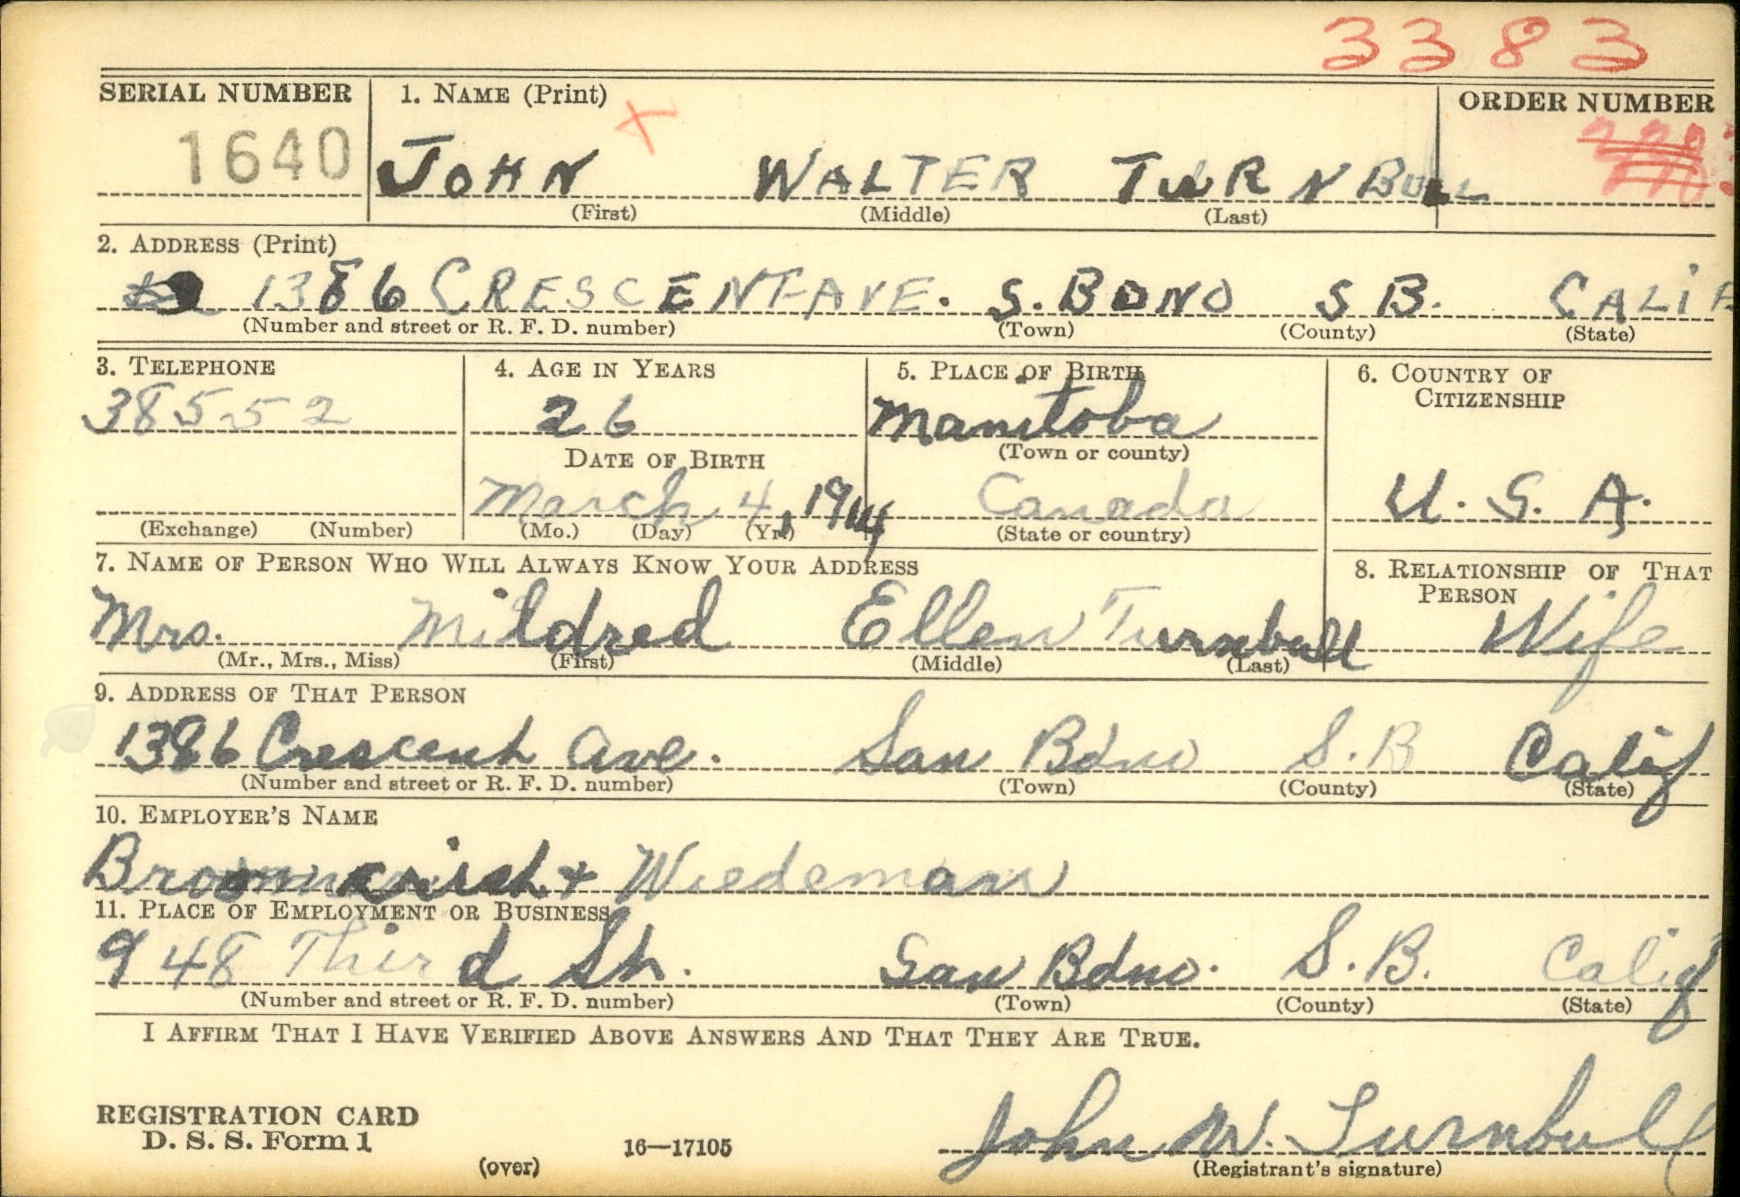 3383
SERIAL NUMBER 1. NAME (Print) ORDER NUMBER
1640 JOHN WALTER TURNBULL
(First) (Middle) (Last)
2. ADDRESS (Print)
1386 CRESCENT AVE. S. BDNO S B. CALIF
(Number and street or R. F. D. number) (Town) (County) (State)
3. TELEPHONE 4. AGE IN YEARS 5. PLACE OF BIRTH 6. COUNTRY OF
CITIZENSHIP
38552 26 Manitoba
DATE OF BIRTH (Town or county)
March 4, 1914 Canada U. S. A.
(Exchange) (Number) (Mo.) (Day) (Yr.) (State or country)
7. NAME OF PERSON WHO WILL ALWAYS KNOW YOUR ADDRESS 8. RELATIONSHIP OF THAT
PERSON
Mrs. Mildred Ellen Turnbull Wife
(Mr., Mrs., Miss) (First) (Middle) (Last)
9. ADDRESS OF THAT PERSON
1386 Crescent Ave. San Bdno S.B Calif
(Number and street or R. F. D. number) (Town) (County) (State)
10. EMPLOYER'S NAME
+ Wiedemann
11. PLACE OF EMPLOYMENT OR BUSINESS
948 Third St. San Bdno. S.B. Calif
(Number and street or R. F. D. number) (Town) (County) (State)
I AFFIRM THAT I HAVE VERIFIED ABOVE ANSWERS AND THAT THEY ARE TRUE.
REGISTRATION CARD
D. S. S. Form 1 16—17105 John W. Turnbull
(over) (Registrant's signature)